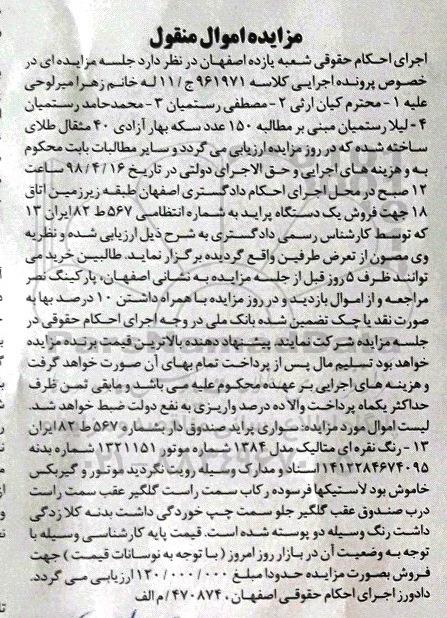 مزایده اموال منقول
اجرای احکام حقوقی شعبه یازده اصفهان در نظر دارد جلسه مزایده ای در
خصوص پرونده اجرایی کلاسه ۹۶۱۹۷۱ ج/۱۱ له خانم زهرا میرلوحی
علیه ۱- محترم کیان ارثی ۲- مصطفی رستمیان ۳- محمدحامد رستمیان
۴- لیلا رستمیان مبنی بر مطالبه ۱۵۰ عدد سکه بهار آزادی ۴۰ مثقال طلای
ساخته شده که در روز مزایده ارزیابی می گردد و سایر مطالبات بابت محکوم
به و هزینه های اجرایی و حق الاجرای دولتی در تاریخ ۹۸/۴/۱۶ ساعت
۱۲ صبح در محل اجرای احکام دادگستری اصفهان طبقه زیرزمین اتاق
۱۸ جهت فروش یک دستگاه پراید به شماره انتظامی ۵۶۷ ط ۸۲ ایران ۱۳
که توسط کارشناس رسمی دادگستری به شرح ذیل ارزیابی شده و نظریه
وی مصون از تعرض طرفین واقع گردیده برگزار نماید. طالبین خرید می
توانند ظرف ۵ روز قبل از جلسه مزایده به نشانی اصفهان، پارکینگ نصر
مراجعه و از اموال بازدید و در روز مزایده با همراه داشتن ۱۰ درصد بها به
صورت نقد یا چک تضمین شده بانک ملی در وجه اجرای احکام حقوقی در
جلسه مزایده شرکت نمایند. پیشنهاد دهنده بالاترین قیمت برنده مزایده
خواهد بود تسلیم مال پس از پرداخت تمام بهای آن صورت خواهد گرفت
و هزینه های اجرایی بر عهده محکوم علیه می باشد و مابقی ثمن ظرف
حداکثر یکماه پرداخت والا ده درصد واریزی به نفع دولت ضبط خواهد شد.
لیست اموال مورد مزایده: سواری پراید صندوق دار بشماره ۵۶۷ ط ۸۲ ایران
۱۳ - رنگ نقره ای متالیک مدل ۱۳۸۴ شماره موتور ۱۳۲۱۱۵۱ شماره بدنه
۱۴۱۲۲۸۴۶۷۴۰۹۵ اسناد و مدارک وسیله رویت نگردید موتور و گیربکس
خاموش بود لاستیکها فرسوده رکاب سمت راست گلگیر عقب سمت راست
درب صندوق عقب گلگیر جلو سمت چپ خوردگی داشت بدنه کلا زدگی
داشت رنگ وسیله دو پوسته شده است. قیمت پایه کارشناسی وسیله با
توجه به وضعیت آن در بازار روز امروز (با توجه به نوسانات قیمت) جهت
فروش بصورت مزایده حدودا مبلغ ۱۲۰/۰۰۰/۰۰۰ ارزیابی می گردد.
دادورز اجرای احکام حقوقی اصفهان ۴۷۰۸۷۴۰/م الف